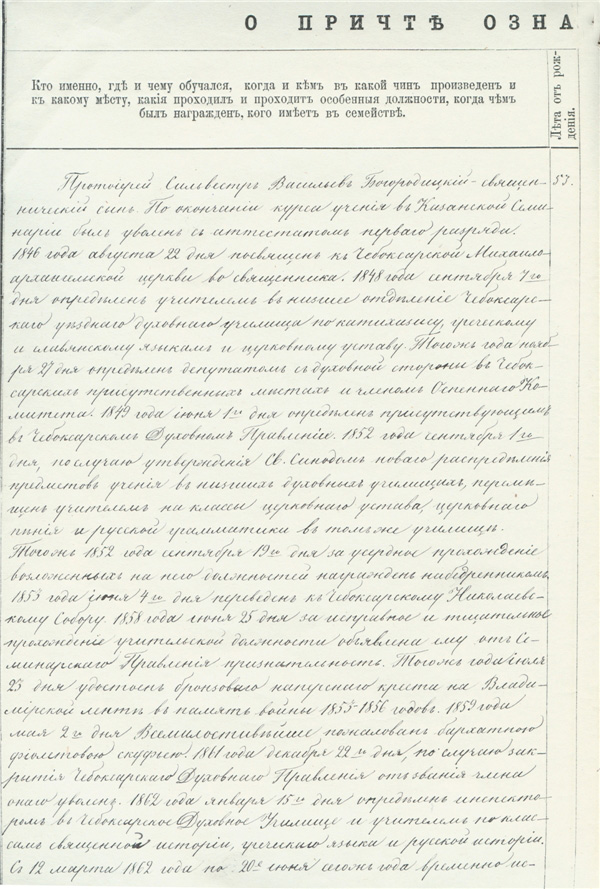 О ПРИЧТѢ ОЗНА
Кто именно, гдѣ и чему обучался, когда и кѣмъ въ какой чинъ произведенъ и
къ какому мѣсту, какія проходилъ и проходитъ особенныя должности, когда чѣмъ
былъ награжденъ, кого имѣетъ въ семействѣ.
Лѣта отъ рож-
денія.
Протоіерей Сильвестръ Васильевъ Богородицкій – священ-
53.
ническій сынъ. По окончаніи курса ученія въ Казанской Семи-
наріи былъ уволенъ съ аттестатомъ перваго разряда.
1846 года августа 22 дня посвященъ къ Чебоксарской Михаило-
архангельской церкви во священника. 1848 года сентября 7го
дня опредѣленъ учителемъ въ низшее отдѣленіе Чебоксар-
скаго уѣзднаго духовнаго училища по катихизису, греческому
и славянскому языкамъ и церковному уставу. Тогожъ года нояб-
ря 27 дня опредѣленъ депутатомъ съ духовной стороны въ Чебок-
сарскихъ присутственныхъ мѣстахъ и членомъ Оспеннаго Ко-
митета. 1849 года іюня 1го дня опредѣленъ присутствующимъ
въ Чебоксарскомъ Духовномъ Правленіи. 1852 года сентября 1го
дня, по случаю утвержденія Св. Синодомъ новаго распредѣленія
предметовъ ученія въ низшихъ духовныхъ училищахъ, перемѣ-
щенъ учителемъ на классы церковнаго устава, церковнаго
пѣнія и русской грамматики въ томъ же училищѣ.
Тогожъ 1852 года сентября 19го дня за усердное прохожденіе
возложенныхъ на него должностей награжденъ набедренникомъ.
1853 года іюня 4го дня переведенъ къ Чебоксарскому Николаевс-
кому Собору. 1858 года іюня 25 дня за исправное и тщательное
прохожденіе учительской должности объявлена ему отъ Се-
минарскаго Правленія признательность. Тогожъ года іюля
23 дня удостоенъ бронзоваго наперснаго креста на Влади-
мірской лентѣ въ память войны 1853-1856 годовъ. 1859 года
мая 2го дня Всемилостивѣйше пожалованъ бархатною
фіолетовою скуфьею. 1861 года декабря 22го дня, по случаю зак-
рытія Чебоксарскаго Духовнаго Правленія отъ званія члена
онаго уволенъ. 1862 года января 15го дня опредѣленъ инспекто-
ромъ въ Чебоксарское Духовное Училище и учителемъ по клас-
самъ священной исторіи, греческаго языка и русской исторіи.
Съ 12 марта 1862 года по 20е іюня сегожъ года временно ис-